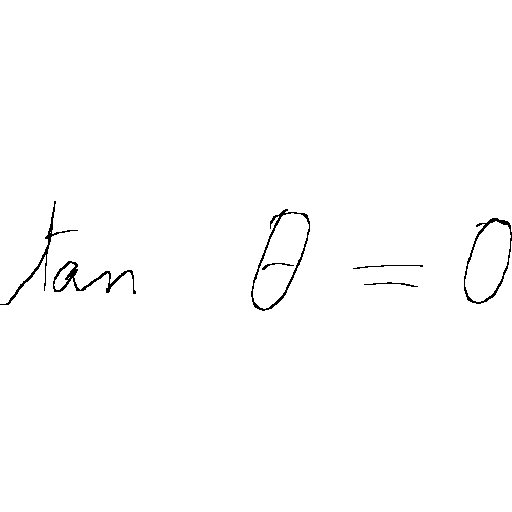 tan θ = 0